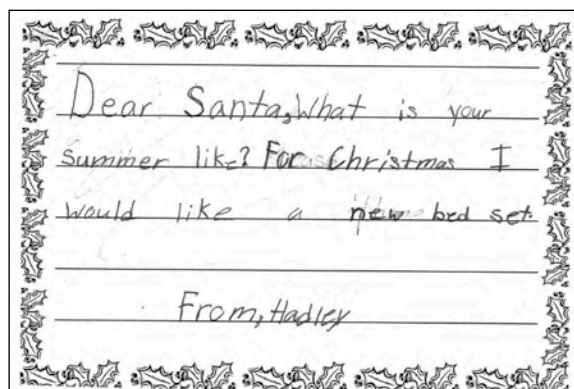 Dear Santa, What is your
summer like? For Christmas I
would like a new bed set.
From, Hadley